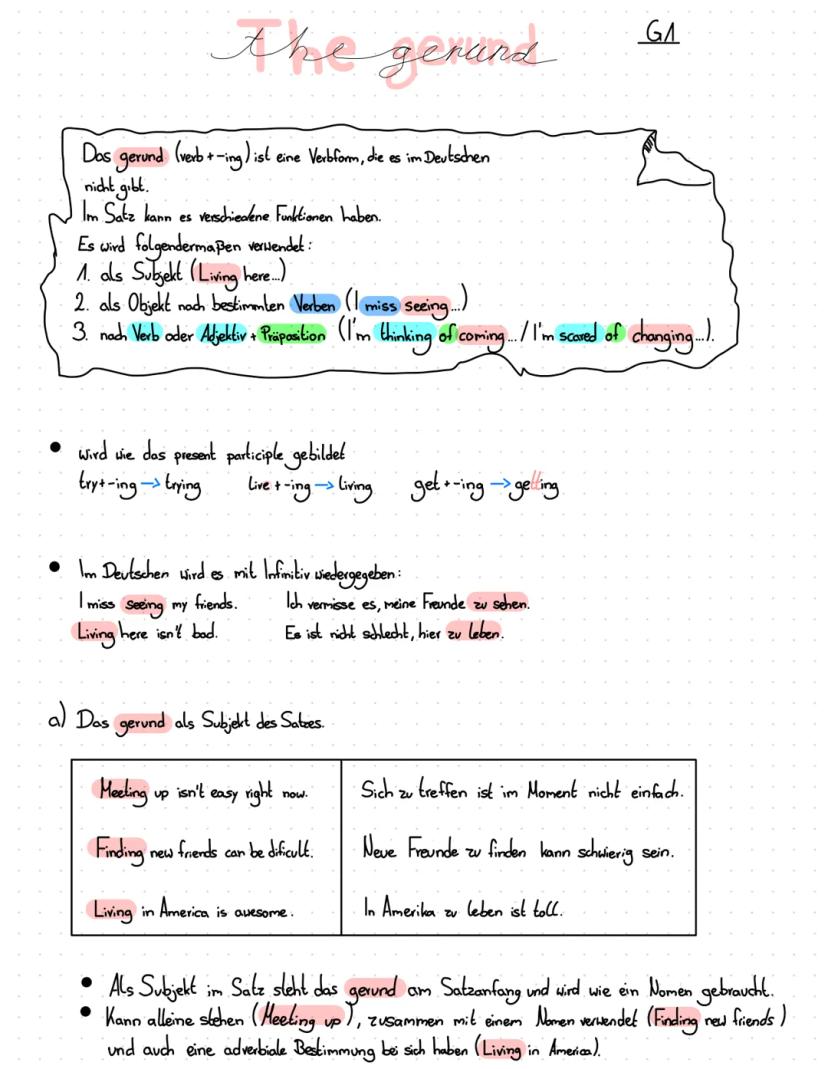 The gerund
the gerund
G1
Das gerund (verb + -ing) ist eine Verbform, die es im Deutschen
nicht gibt.
Im Satz kann es verschiedene Funktionen haben.
Es wird folgendermaßen verwendet:
1. als Subjekt (Living here...)
2. als Objekt nach bestimmten Verben (I miss seeing...)
3. nach Verb oder Adjektiv + Präposition (I'm thinking of coming.../I'm scared of changing...).
• wird wie das present participle gebildet
try + -ing → trying live + -ing → living get + -ing → getting
• Im Deutschen wird es mit Infinitiv wiedergegeben:
I miss seeing my friends. Ich vermisse es, meine Freunde zu sehen.
Living here isn't bad. Es ist nicht schlecht, hier zu leben.
a) Das gerund als Subjekt des Satzes.
Meeting up isn't easy right now. Sich zu treffen ist im Moment nicht einfach.
Finding new friends can be dificult. Neue Freunde zu finden kann schwierig sein.
Living in America is awesome. In Amerika zu leben ist toll.
• Als Subjekt im Satz steht das gerund am Satzanfang und wird wie ein Nomen gebraucht.
• Kann alleine stehen (Meeting up), zusammen mit einem Nomen verwendet (Finding new friends)
und auch eine adverbiale Bestimmung bei sich haben (Living in America).